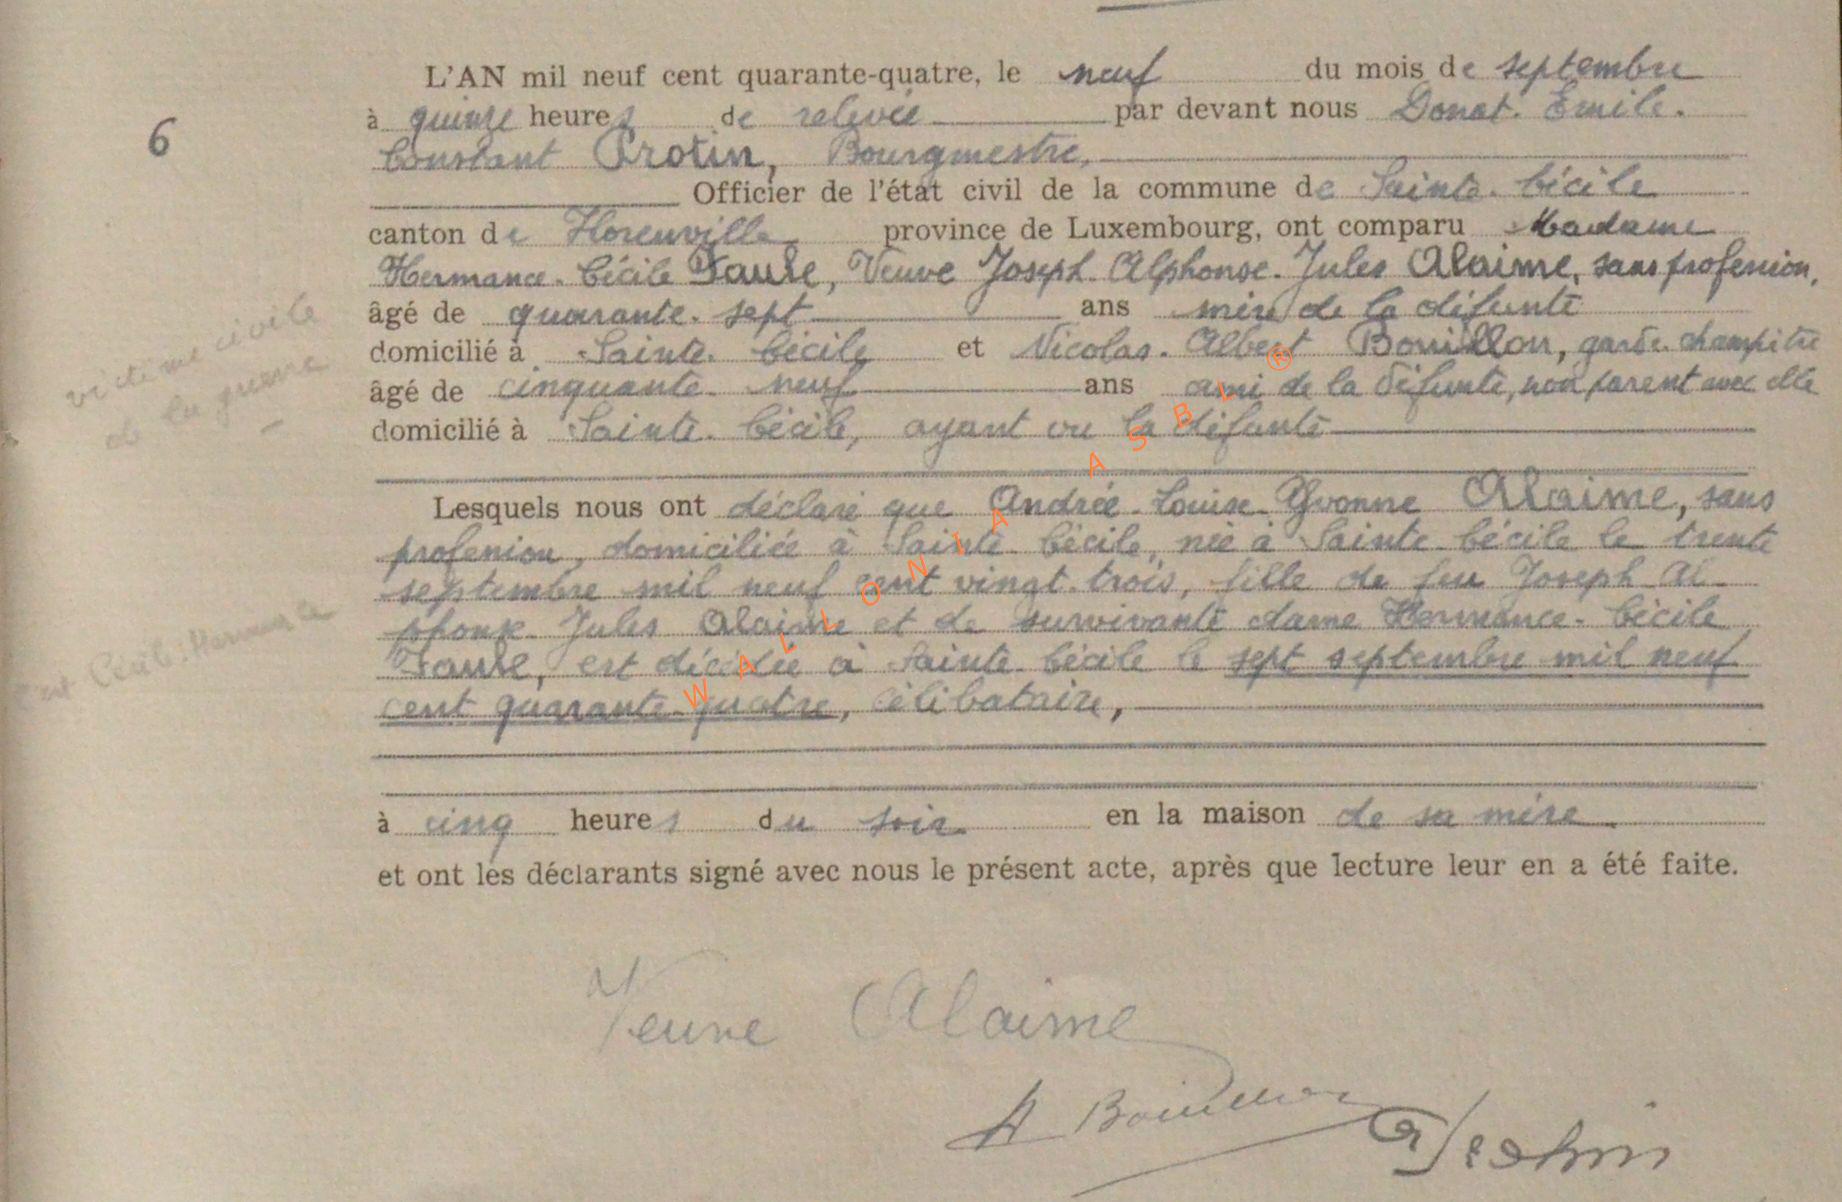 L'AN mil neuf cent quarante-quatre, le neuf du mois de septembre
6
à quinze heures de relevée par devant nous Donat. Emile.
Constant Protin, Bourgmestre,
Officier de l'état civil de la commune de Sainte. Cécile
canton de Florenville province de Luxembourg, ont comparu Madame
Hermance. Cécile Faule, Veuve Joseph. Alphonse. Jules Alaime, sans profession,
âgé de quarante. sept ans mère de la défunte
victime civile
de la guerre
domicilié à Sainte. Cécile et Nicolas. Albert Bouillon, garde champêtre
âgé de cinquante. neuf ans ami de la défunte, non parent avec elle
domicilié à Sainte. Cécile, ayant vu la défunte
Lesquels nous ont déclaré que Andrée. Louise. Yvonne Alaime, sans
profession, domiciliée à Sainte. Cécile, née à Sainte. Cécile le trente
septembre mil neuf cent vingt. trois, fille de feu Joseph. Al-
phonse. Jules Alaime et de survivante dame Hermance. Cécile
Faule, est décédée à Sainte. Cécile le sept septembre mil neuf
cent quarante-quatre, célibataire,
Cécile. Hermance
à cinq heures du soir en la maison de sa mère.
et ont les déclarants signé avec nous le présent acte, après que lecture leur en a été faite.
Veuve Alaime
A Bouillon
WALLONIA ASBL ®